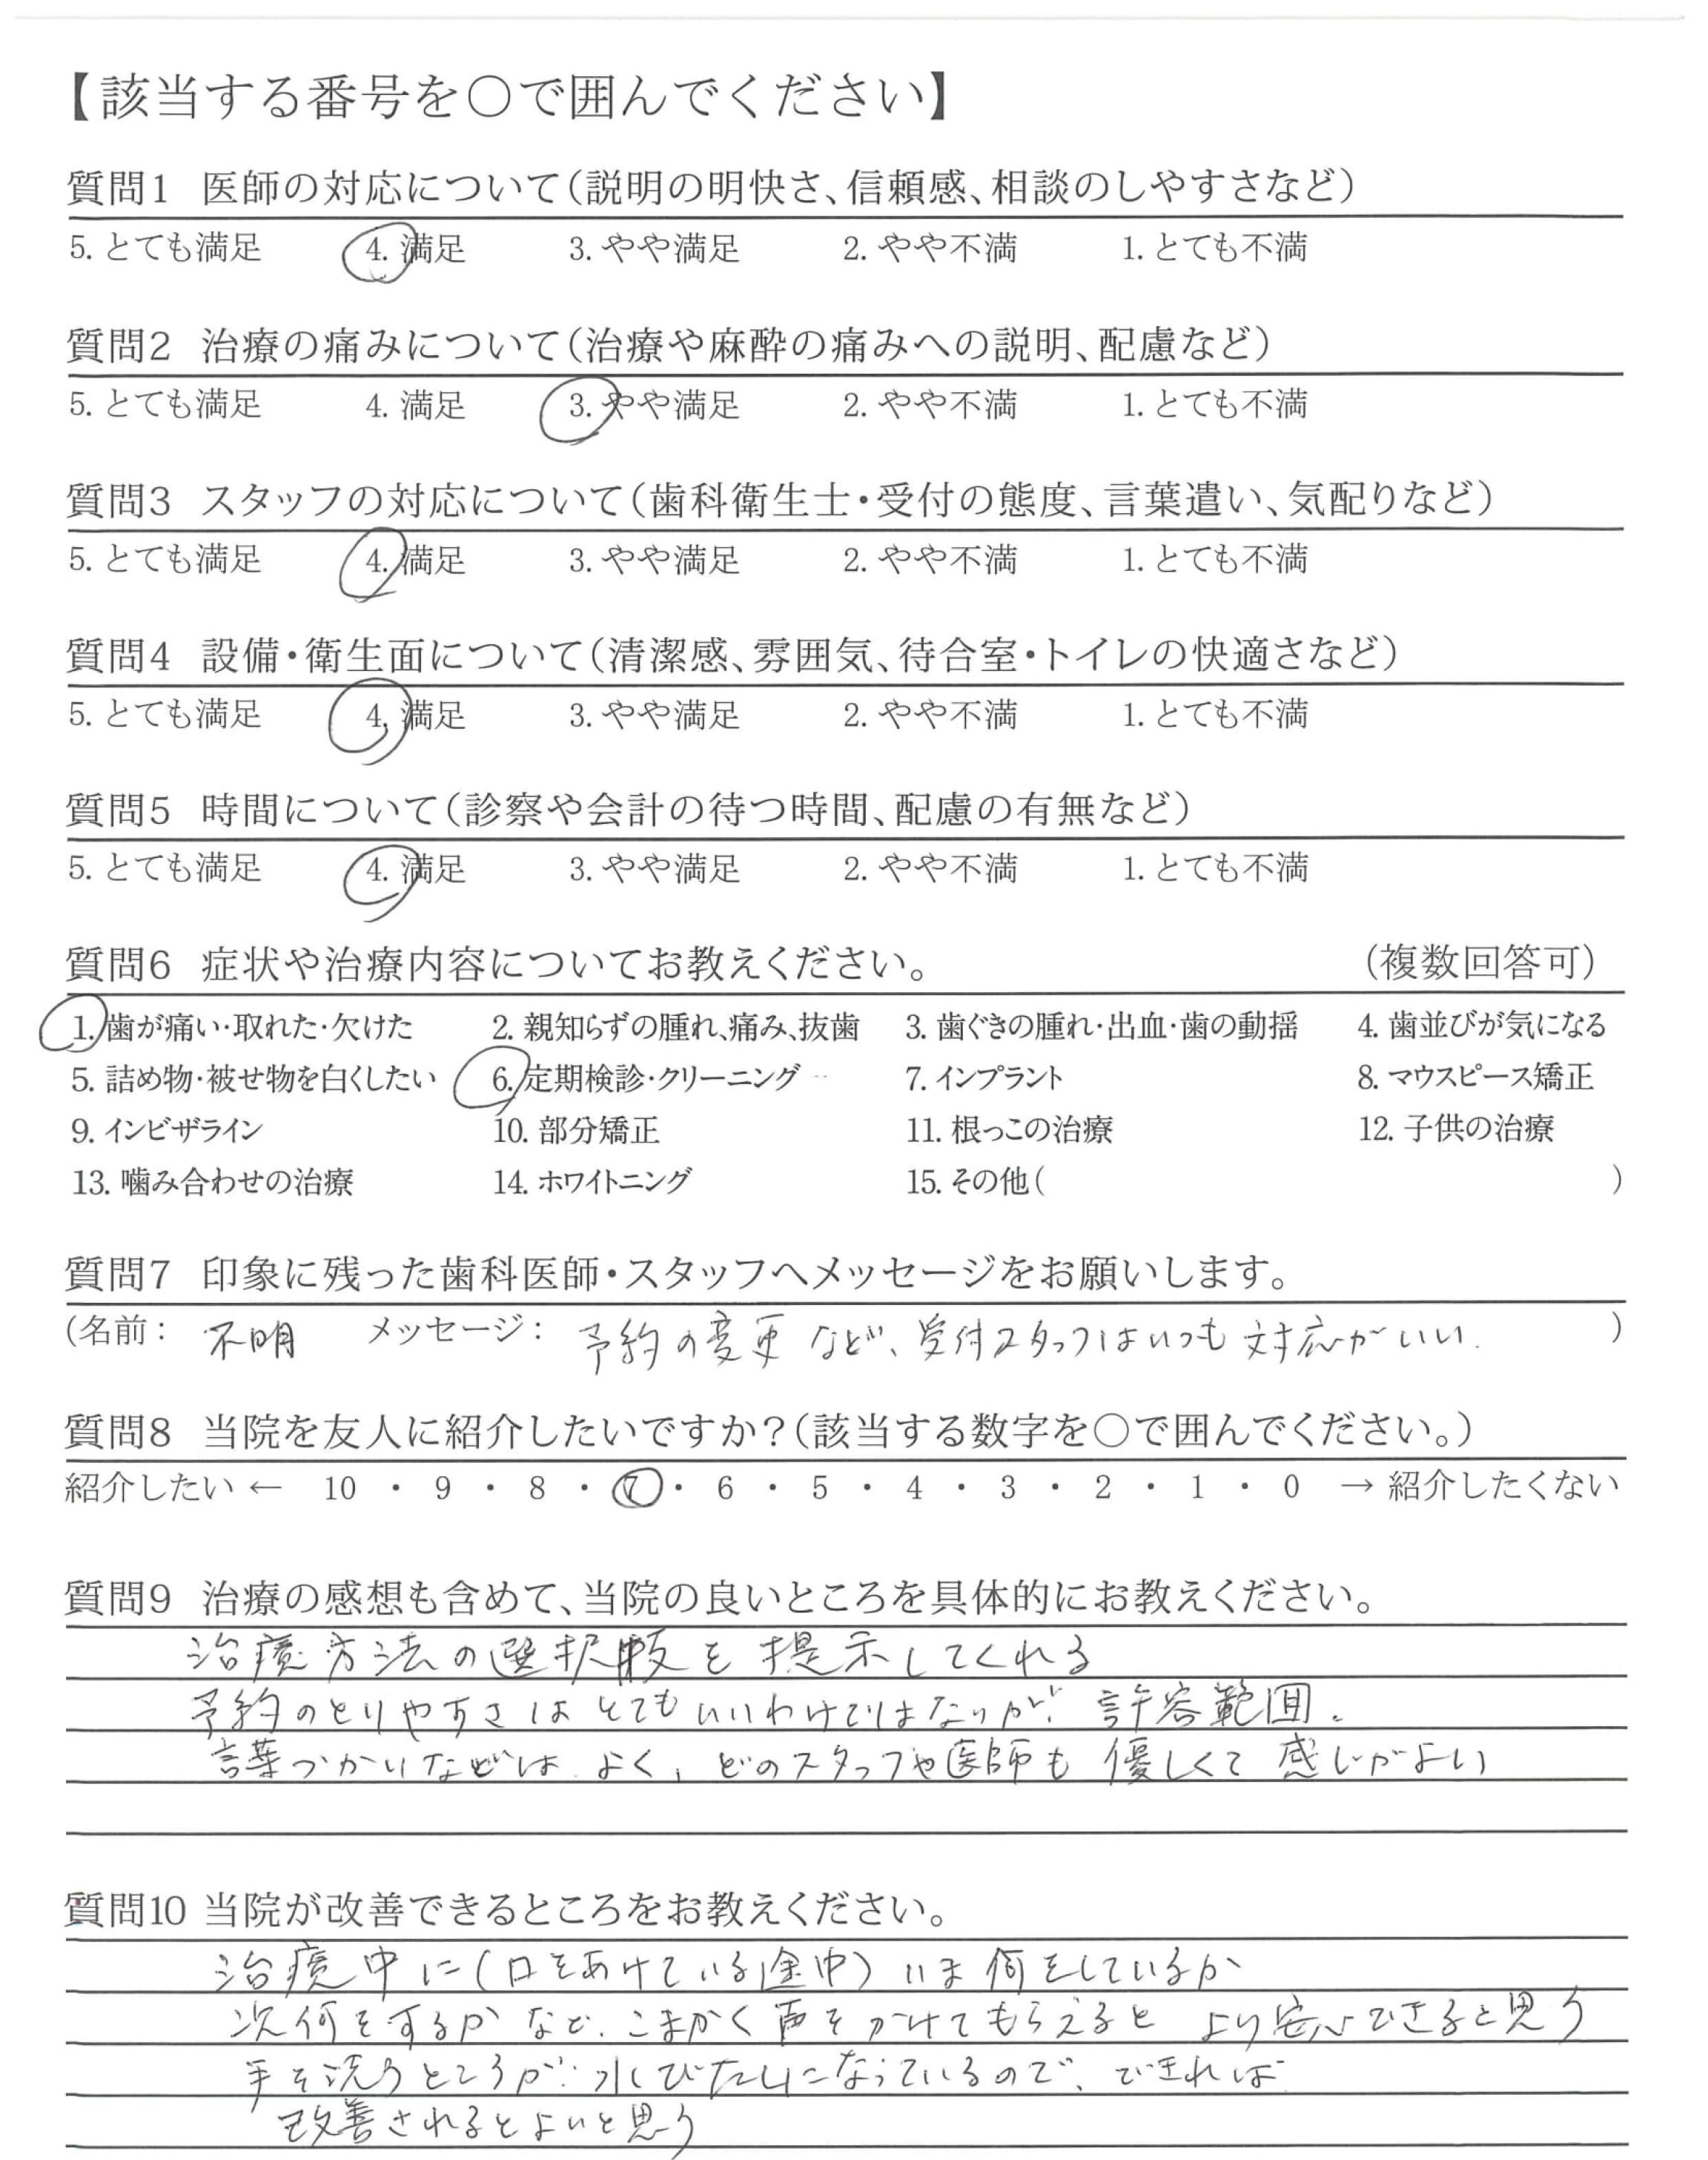 【該当する番号を○で囲んでください】
質問1 医師の対応について(説明の明快さ、信頼感、相談のしやすさなど)
5. とても満足 4. 満足 3. やや満足 2. やや不満 1. とても不満
質問2 治療の痛みについて(治療や麻酔の痛みへの説明、配慮など)
5. とても満足 4. 満足 3. やや満足 2. やや不満 1. とても不満
質問3 スタッフの対応について(歯科衛生士・受付の態度、言葉遣い、気配りなど)
5. とても満足 4. 満足 3. やや満足 2. やや不満 1. とても不満
質問4 設備・衛生面について(清潔感、雰囲気、待合室・トイレの快適さなど)
5. とても満足 4. 満足 3. やや満足 2. やや不満 1. とても不満
質問5 時間について(診察や会計の待つ時間、配慮の有無など)
5. とても満足 4. 満足 3. やや満足 2. やや不満 1. とても不満
質問6 症状や治療内容についてお教えください。 (複数回答可)
1. 歯が痛い・取れた・欠けた 2. 親知らずの腫れ、痛み、抜歯 3. 歯ぐきの腫れ・出血・歯の動揺 4. 歯並びが気になる
5. 詰め物・被せ物を白くしたい 6. 定期検診・クリーニング 7. インプラント 8. マウスピース矯正
9. インビザライン 10. 部分矯正 11. 根っこの治療 12. 子供の治療
13. 噛み合わせの治療 14. ホワイトニング 15. その他( )
質問7 印象に残った歯科医師・スタッフへメッセージをお願いします。
(名前: 不明 メッセージ: 予約の変更など、受付スタッフはいつも対応がいい. )
質問8 当院を友人に紹介したいですか?(該当する数字を○で囲んでください。)
紹介したい ← 10 ・ 9 ・ 8 ・ 7 ・ 6 ・ 5 ・ 4 ・ 3 ・ 2 ・ 1 ・ 0 → 紹介したくない
質問9 治療の感想も含めて、当院の良いところを具体的にお教えください。
治療方法の選択肢を提示してくれる
予約のとりやすさはとてもいいわけではないが、許容範囲。
言葉づかいなどはよく、どのスタッフや医師も優しくて感じがよい
質問10 当院が改善できるところをお教えください。
治療中に(口をあけている途中)いま何をしているか
次何をするかなど、こまかく声をかけてもらえるとより安心できると思う
手を洗うところが水びたしになっているので、できれば
改善されるとよいと思う